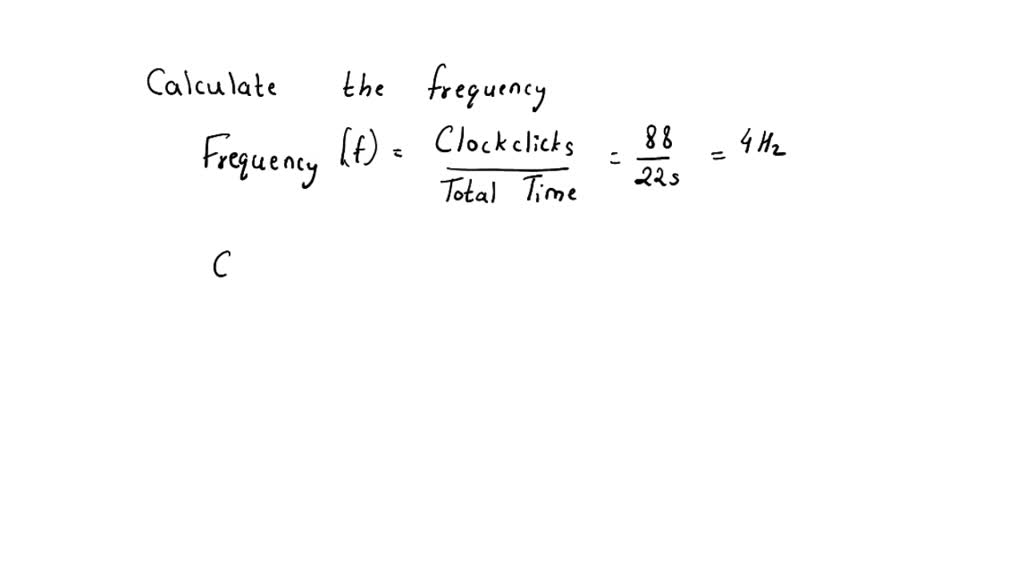 Calculate the frequency
Frequency (f) = Clockclicks / Total Time = 88 / 22s = 4 Hz
C